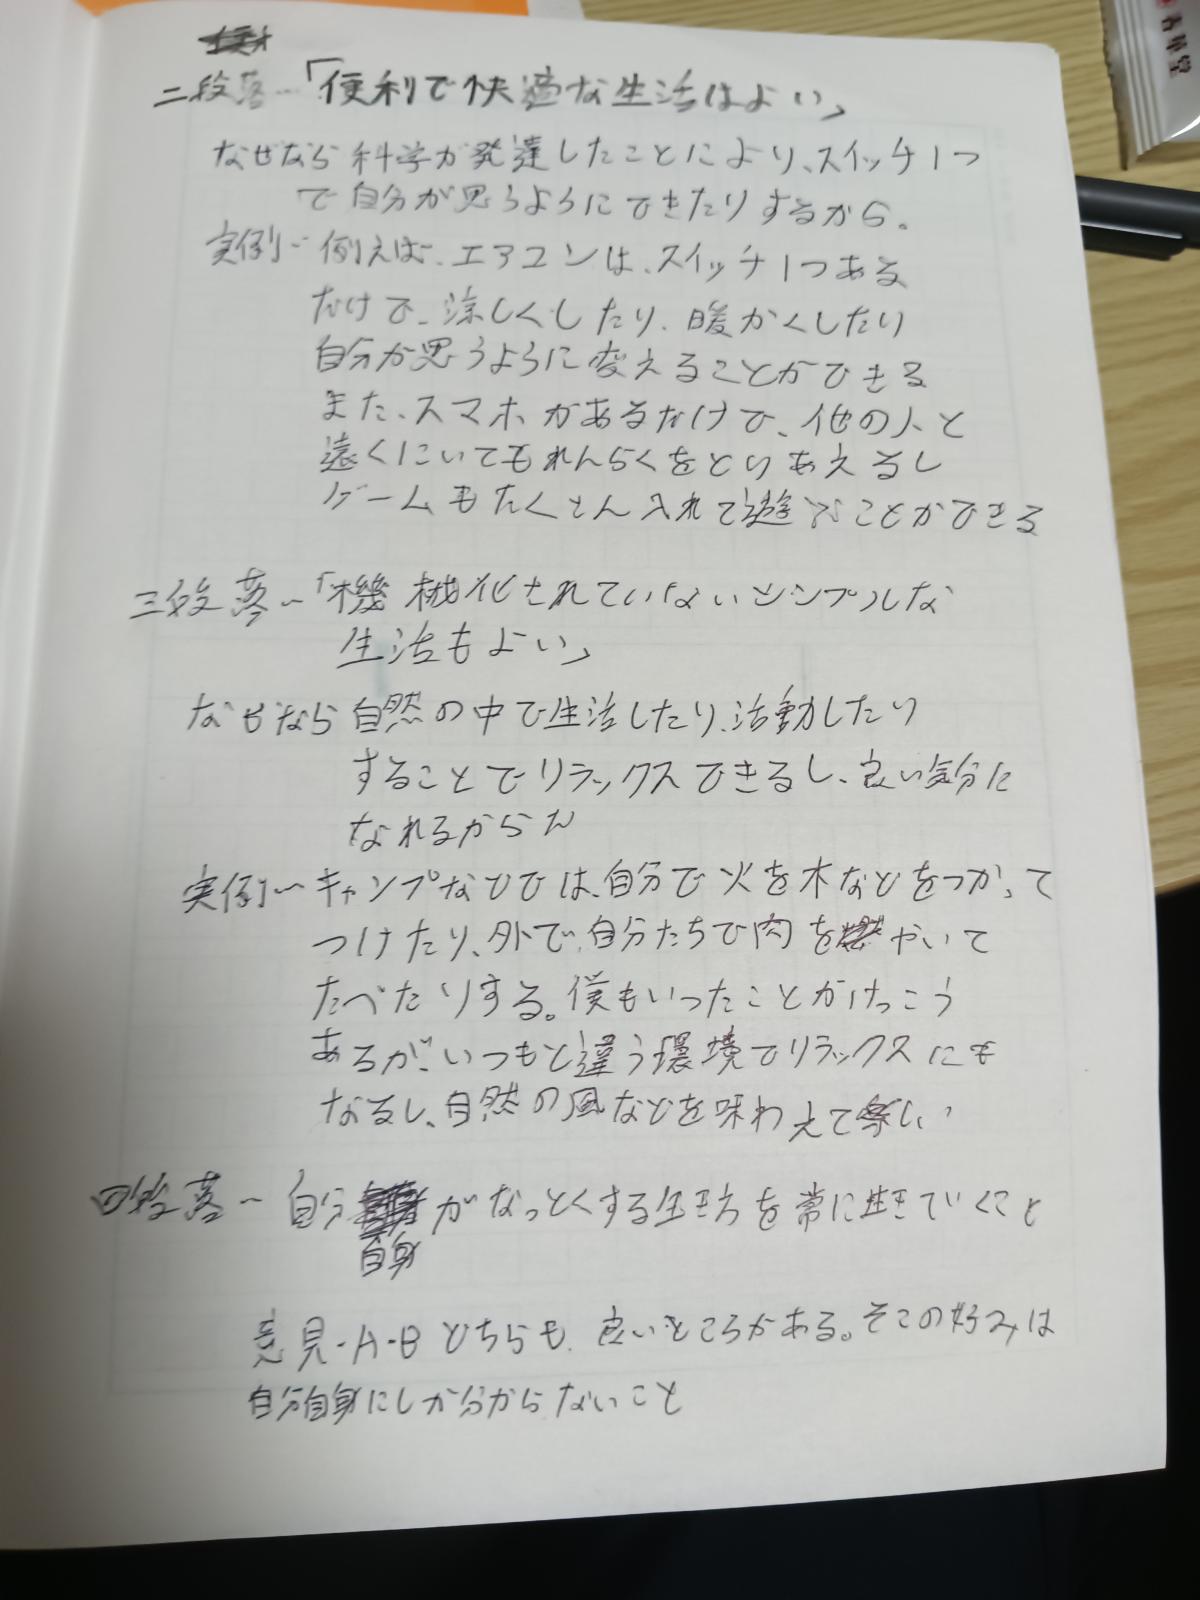 二段落~「便利で快適な生活はよい」
なぜなら科学が発達したことにより、スイッチ1つ
で自分が思うようにできたりするから。
実例~例えば、エアコンは、スイッチ1つある
だけで、涼しくしたり、暖かくしたり
自分が思うように変えることができる
また、スマホがあるだけで、他の人と
遠くにいてもれんらくをとりあえるし
ゲームもたくさん入れて遊ぶことができる
三段落~「機械化されていないシンプルな
生活もよい」
なぜなら自然の中で生活したり、活動したり
することでリラックスできるし、良い気分に
なれるから
実例~キャンプなどでは、自分で火を木などをつかって
つけたり、外で、自分たちで肉をやいて
たべたりする。僕もいったことがけっこう
あるが、いつもと違う環境でリラックスにも
なるし、自然の風などを味わえて楽しい
四段落~自分自身がなっとくする生き方を常に生きていくこと
意見-A-Bどちらも、良いところがある。そこの好みは
自分自身にしか分からないこと
名華堂